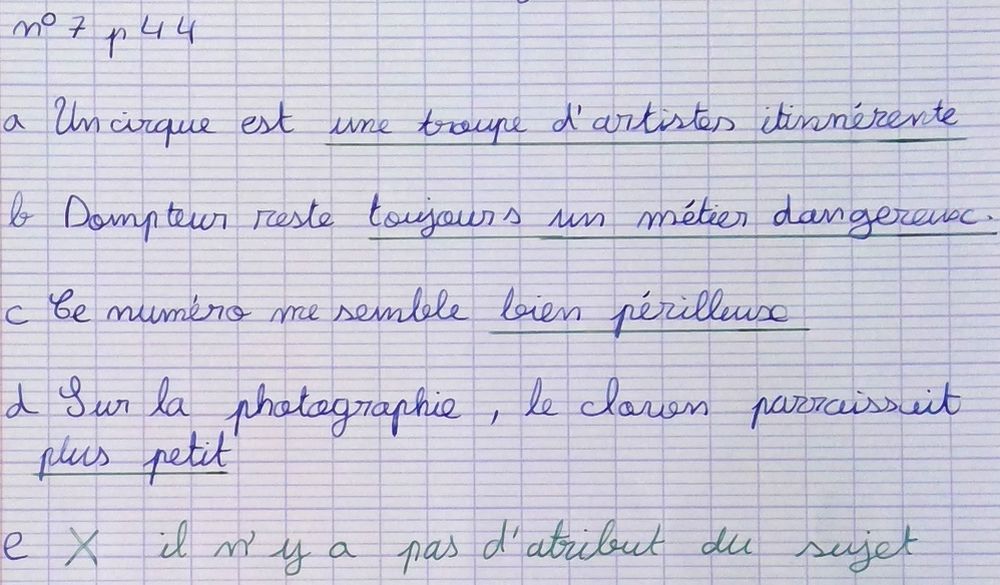 n° 7 p 44
a Un cirque est une troupe d'artistes itinnérente
b Dompteur reste toujours un métier dangereux.
c Ce numéro me semble bien périlleux
d Sur la photographie, le clown parraissait
plus petit
e X il n'y a pas d'atribut du sujet